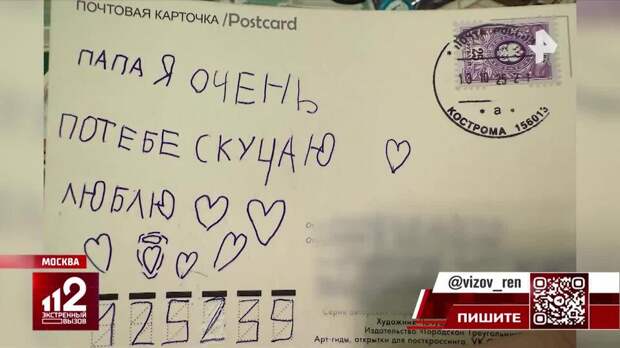 ПОЧТОВАЯ КАРТОЧКА /Postcard
ПОЧТА РОССИИ
КОСТРОМА 156013
а
ПАПА Я ОЧЕНЬ
ПОТЕБЕ СКУЦАЮ
ЛЮБЛЮ
125239
МОСКВА
112
ЭКСТРЕННЫЙ
ВЫЗОВ
@vizov_ren
ПИШИТЕ
Серия
Художник
Издательство «Городской Треугольник
Арт-гиды, открытки для посткроссинга, VK